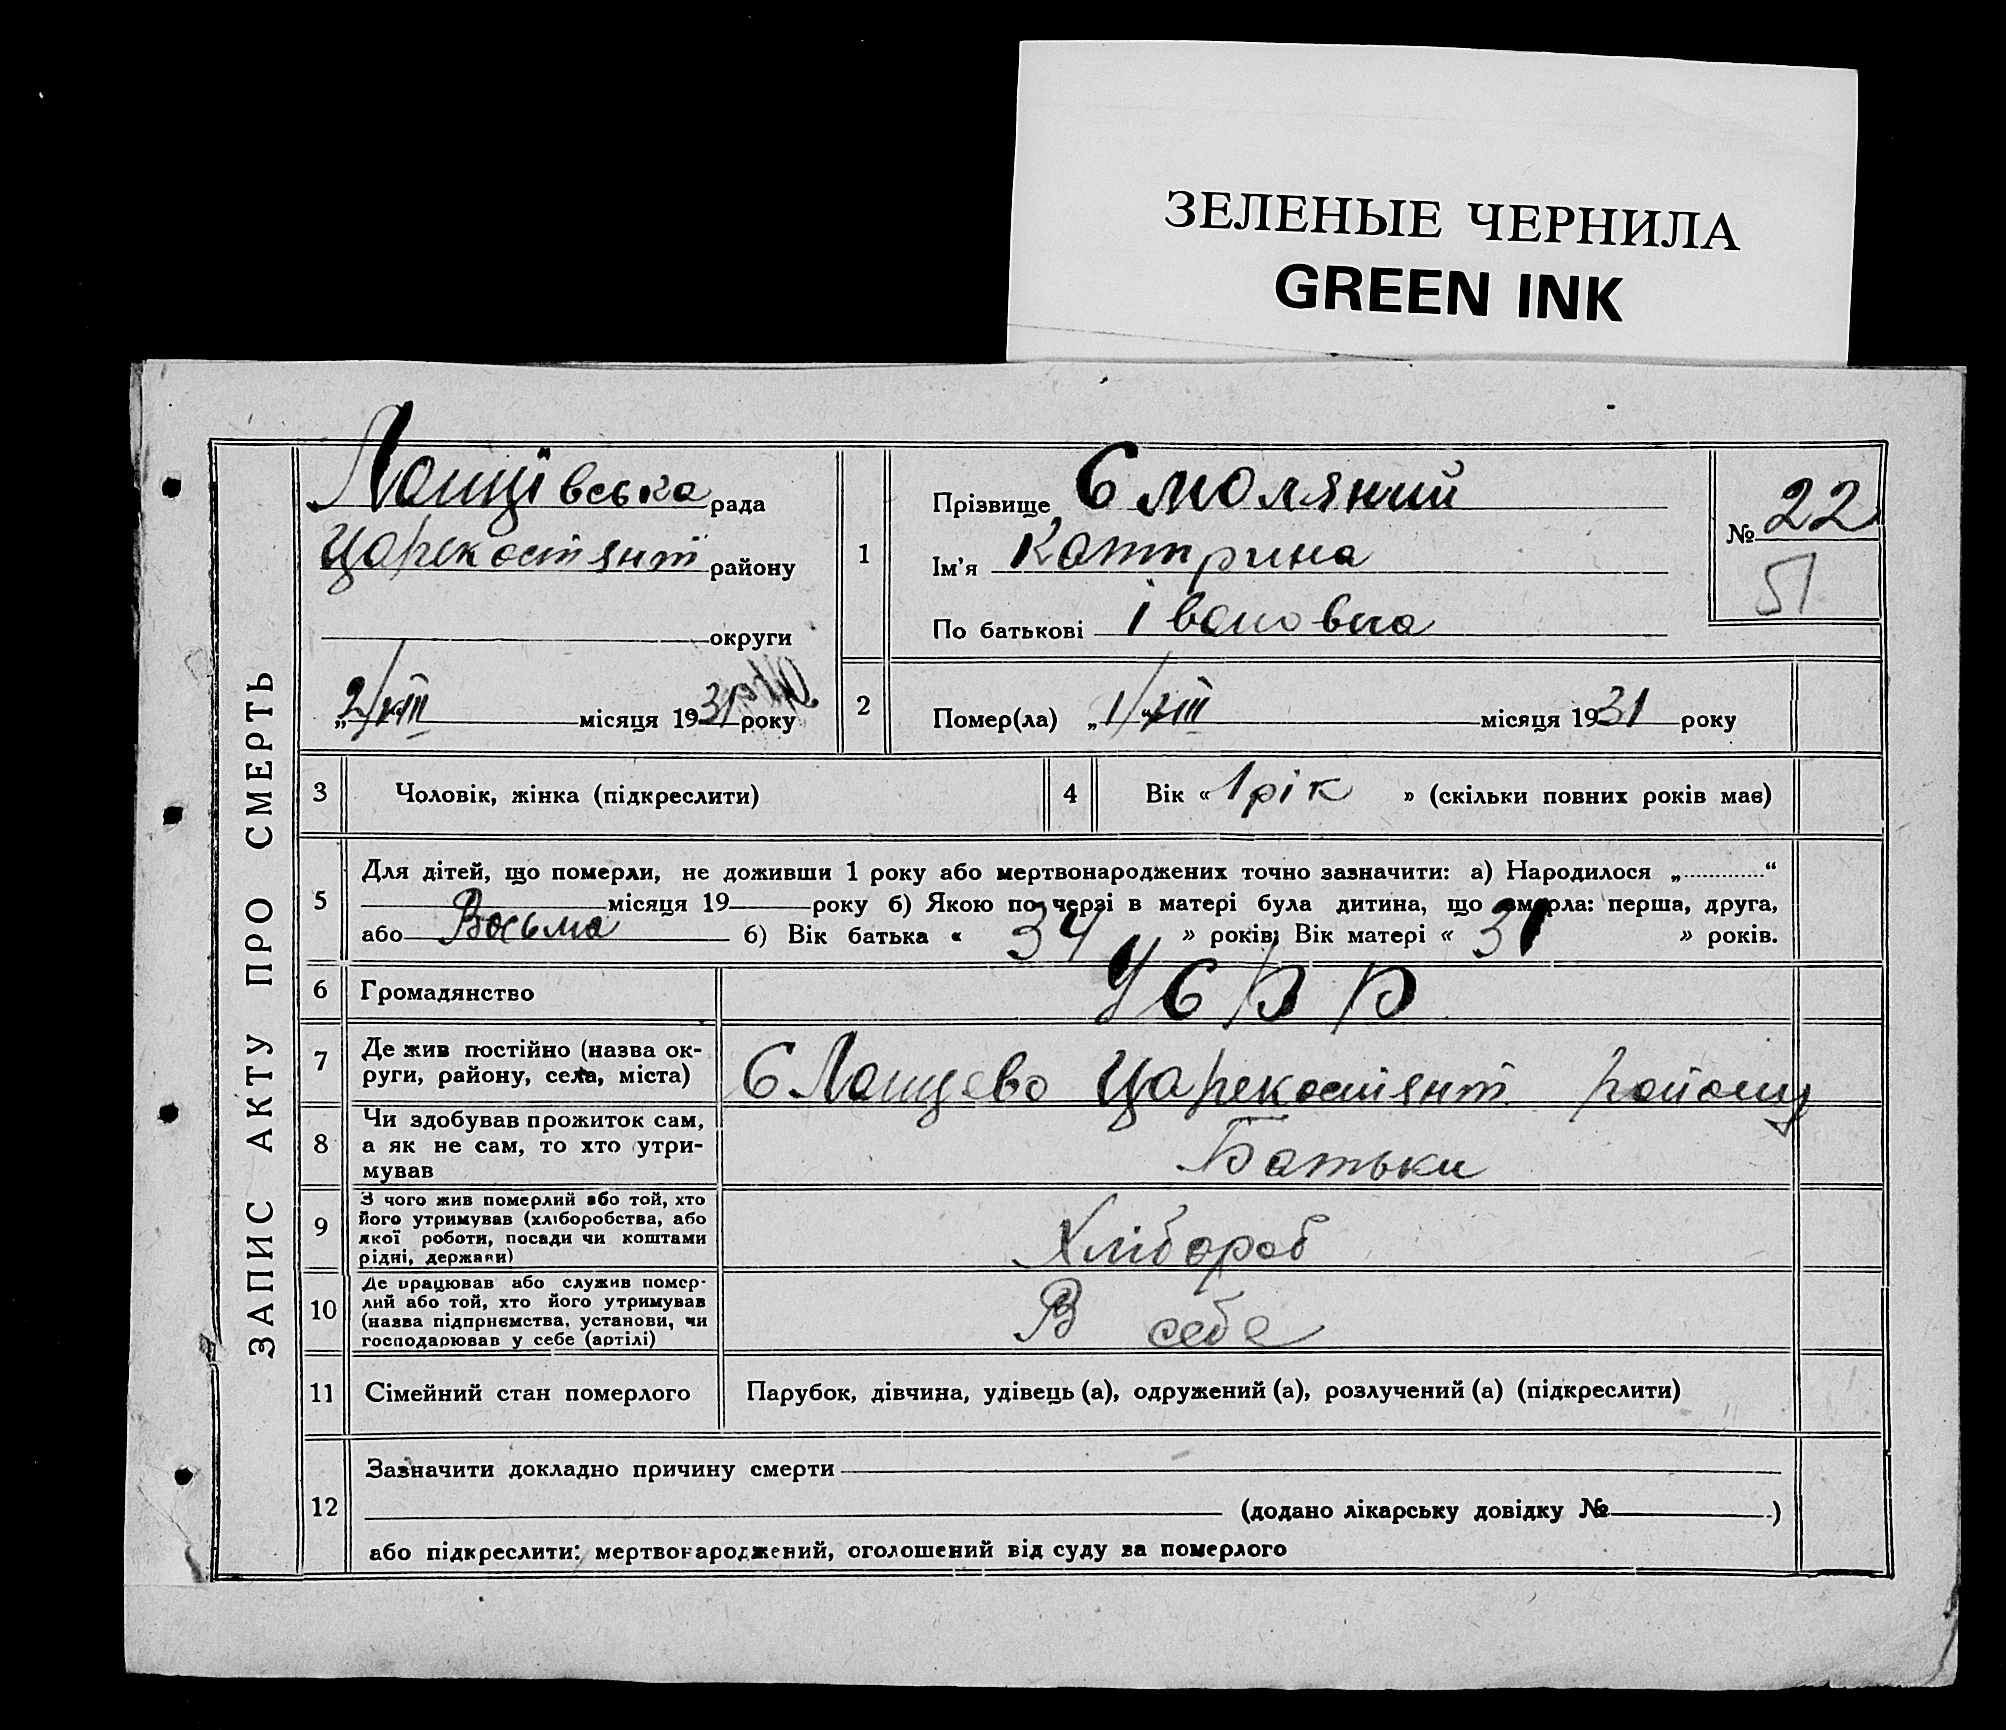 ЗЕЛЕНЫЕ ЧЕРНИЛА
GREEN INK
ЗАПИС АКТУ ПРО СМЕРТЬ
Лощівська рада
Царекостянт району
округи
„2/VIII місяця 1931 року
1
Прізвище Смоляний
Ім'я Катрина
По батькові івановна
№ 22
51
2
Помер(ла) „1/VIII місяця 1931 року
3 Чоловік, жінка (підкреслити)
4 Вік « 1 рік » (скільки повних років має)
5 Для дітей, що померли, не доживши 1 року або мертвонароджених точно зазначити: а) Народилося „ “
місяця 19 року б) Якою по черзі в матері була дитина, що змерла: перша, друга,
або Восьма б) Вік батька « 34 » років; Вік матері « 31 » років.
6 Громадянство УСРР
7 Де жив постійно (назва ок-
руги, району, села, міста) С Лощево Царекостянт району
8 Чи здобував прожиток сам,
а як не сам, то хто утри-
мував Батьки
9 З чого жив померлий або той, хто
його утримував (хліборобства, або
якої роботи, посади чи коштами
рідні, держави) Хлібороб
10 Де працював або служив помер-
лий або той, хто його утримував
(назва підприємства, установи, чи
господарював у себе (артілі) В себе
11 Сімейний стан померлого Парубок, дівчина, удівець (а), одружений (а), розлучений (а) (підкреслити)
12 Зазначити докладно причину смерти
(додано лікарську довідку № )
або підкреслити: мертвонароджений, оголошений від суду за померлого